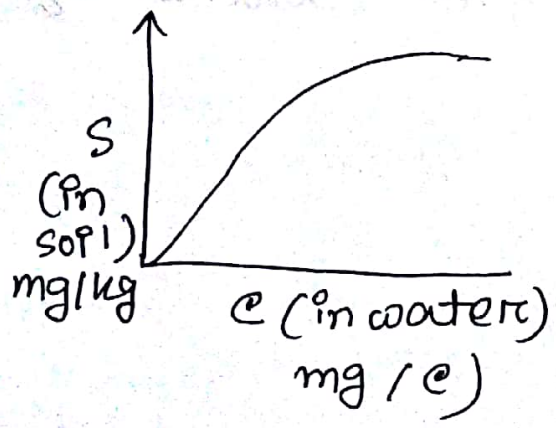 S
(in
soil)
mg/kg
C (in water)
mg/l)